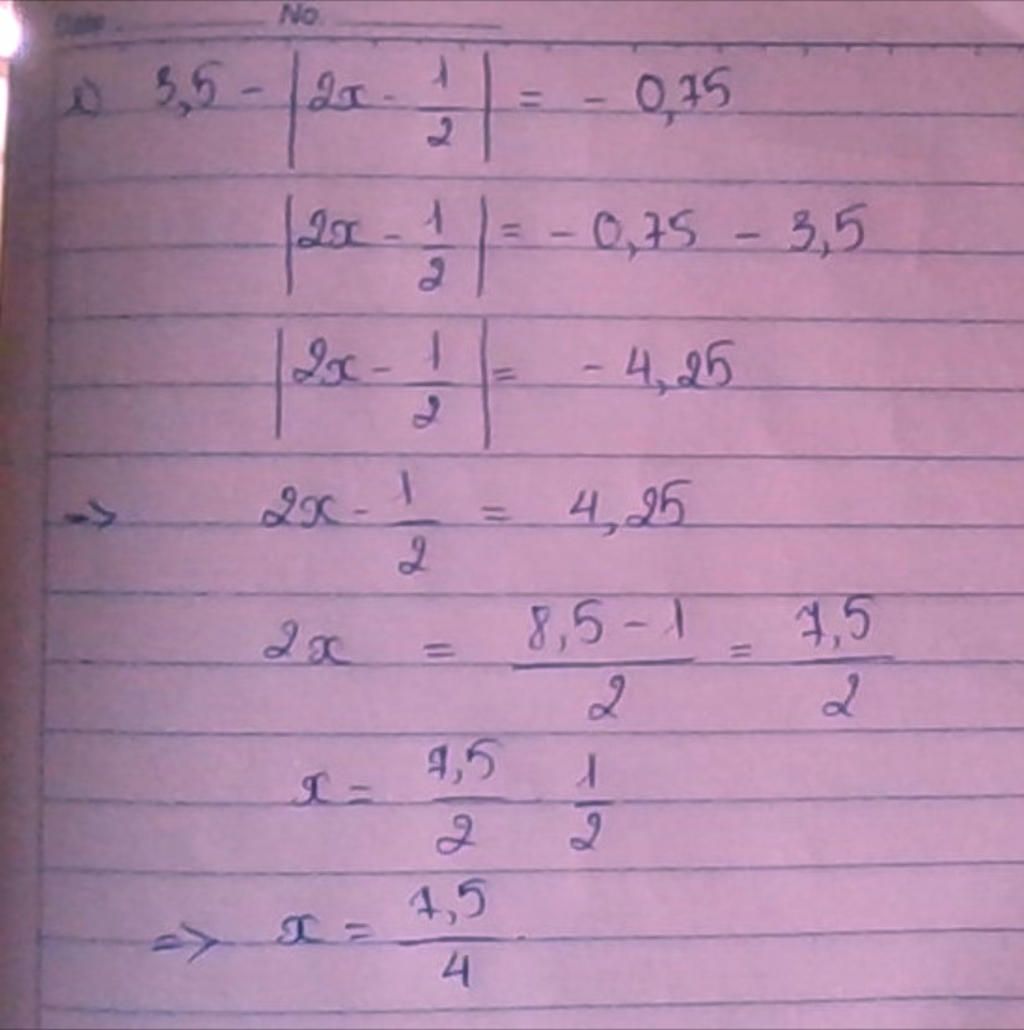 No.
3,5 - |2x - 1/2| = - 0,75
|2x - 1/2| = - 0,75 - 3,5
|2x - 1/2| = - 4,25
→ 2x - 1/2 = 4,25
2x = (8,5 - 1)/2 = 7,5/2
x = 7,5/2 1/2
⇒ x = 7,5/4